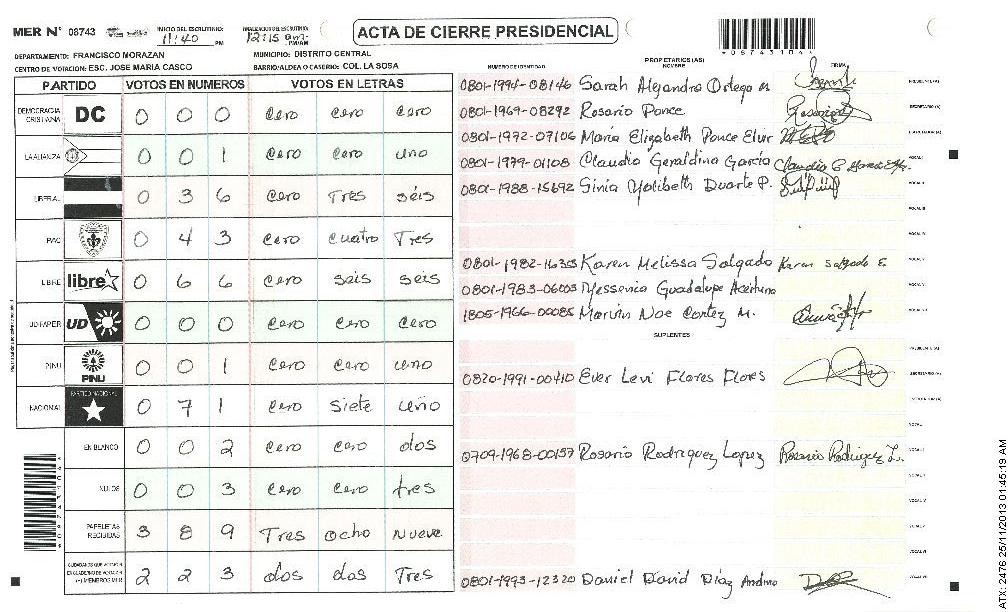 MER N° 08743
INICIO DEL ESCRUTINIO: 11:40 PM
FINALIZACION DEL ESCRUTINIO: 12:15 am PM/AM
ACTA DE CIERRE PRESIDENCIAL
*08743104*
DEPARTAMENTO: FRANCISCO MORAZAN
MUNICIPIO: DISTRITO CENTRAL
CENTRO DE VOTACION: ESC. JOSE MARIA CASCO
BARRIO/ALDEA O CASERIO: COL. LA SOSA
PARTIDO VOTOS EN NUMEROS VOTOS EN LETRAS
DEMOCRACIA CRISTIANA DC 0 0 0 cero cero cero
LA ALIANZA 0 0 1 cero cero uno
LIBERAL 0 3 6 cero Tres séis
PAC 0 4 3 cero cuatro Tres
LIBRE libre 0 6 6 cero seis seis
UD-FAPER UD 0 0 0 cero cero cero
PINU PINU 0 0 1 cero cero uno
NACIONAL PARTIDO NACIONAL 0 7 1 cero siete uno
EN BLANCO 0 0 2 cero cero dos
NULOS 0 0 3 cero cero tres
PAPELETAS RECIBIDAS 3 8 9 Tres ocho nueve
CIUDADANOS QUE VOTARON EN CUADERNO DE VOTACION (+) MIEMBROS MER 2 2 3 dos dos Tres
PROPIETARIOS (AS)
NUMERO DE IDENTIDAD NOMBRE FIRMA
0801-1994-08146 Sarah Alejandra Ortega M PRESIDENTE (A)
0801-1969-08292 Rosario Ponce SECRETARIO (A)
0801-1972-07106 Maria Elizabeth Ponce Elvir ESCRUTADOR (A)
0801-1979-01108 Claudia Geraldina García VOCAL I
0801-1988-15692 Sinia Yolibeth Duarte P. VOCAL II
VOCAL III
0801-1982-16355 Karen Melissa Salgado Karen Salgado E. VOCAL V
0801-1983-06003 Yessenia Guadalupe Aceituno VOCAL VI
1805-1966-00085 Marvin Noe Cortez M.
SUPLENTES
PRESIDENTE (A)
0820-1991-00410 Ever Levi Flores Flores SECRETARIO (A)
ESCRUTADOR (A)
VOCAL I
0709-1968-00157 Rosario Rodriguez Lopez Rosario Rodriguez L.
0801-1993-12320 Daniel David Díaz Andino
ATX 2476 25/11/2013 01:45:19 AM